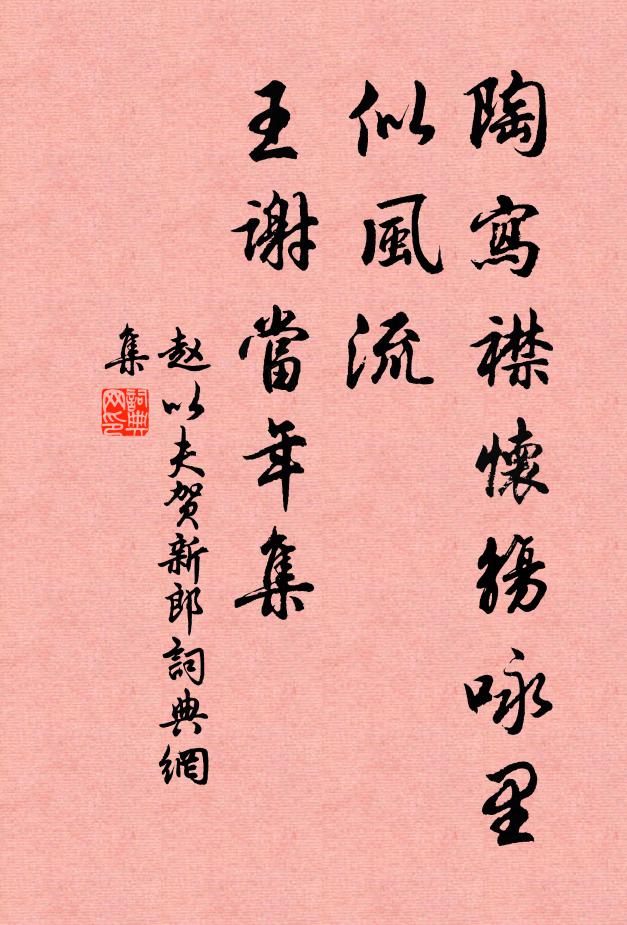 陶寫襟懷觴咏里
似風流
王謝當年集
赵以夫贺新郎詞典網
集
詞典
网印